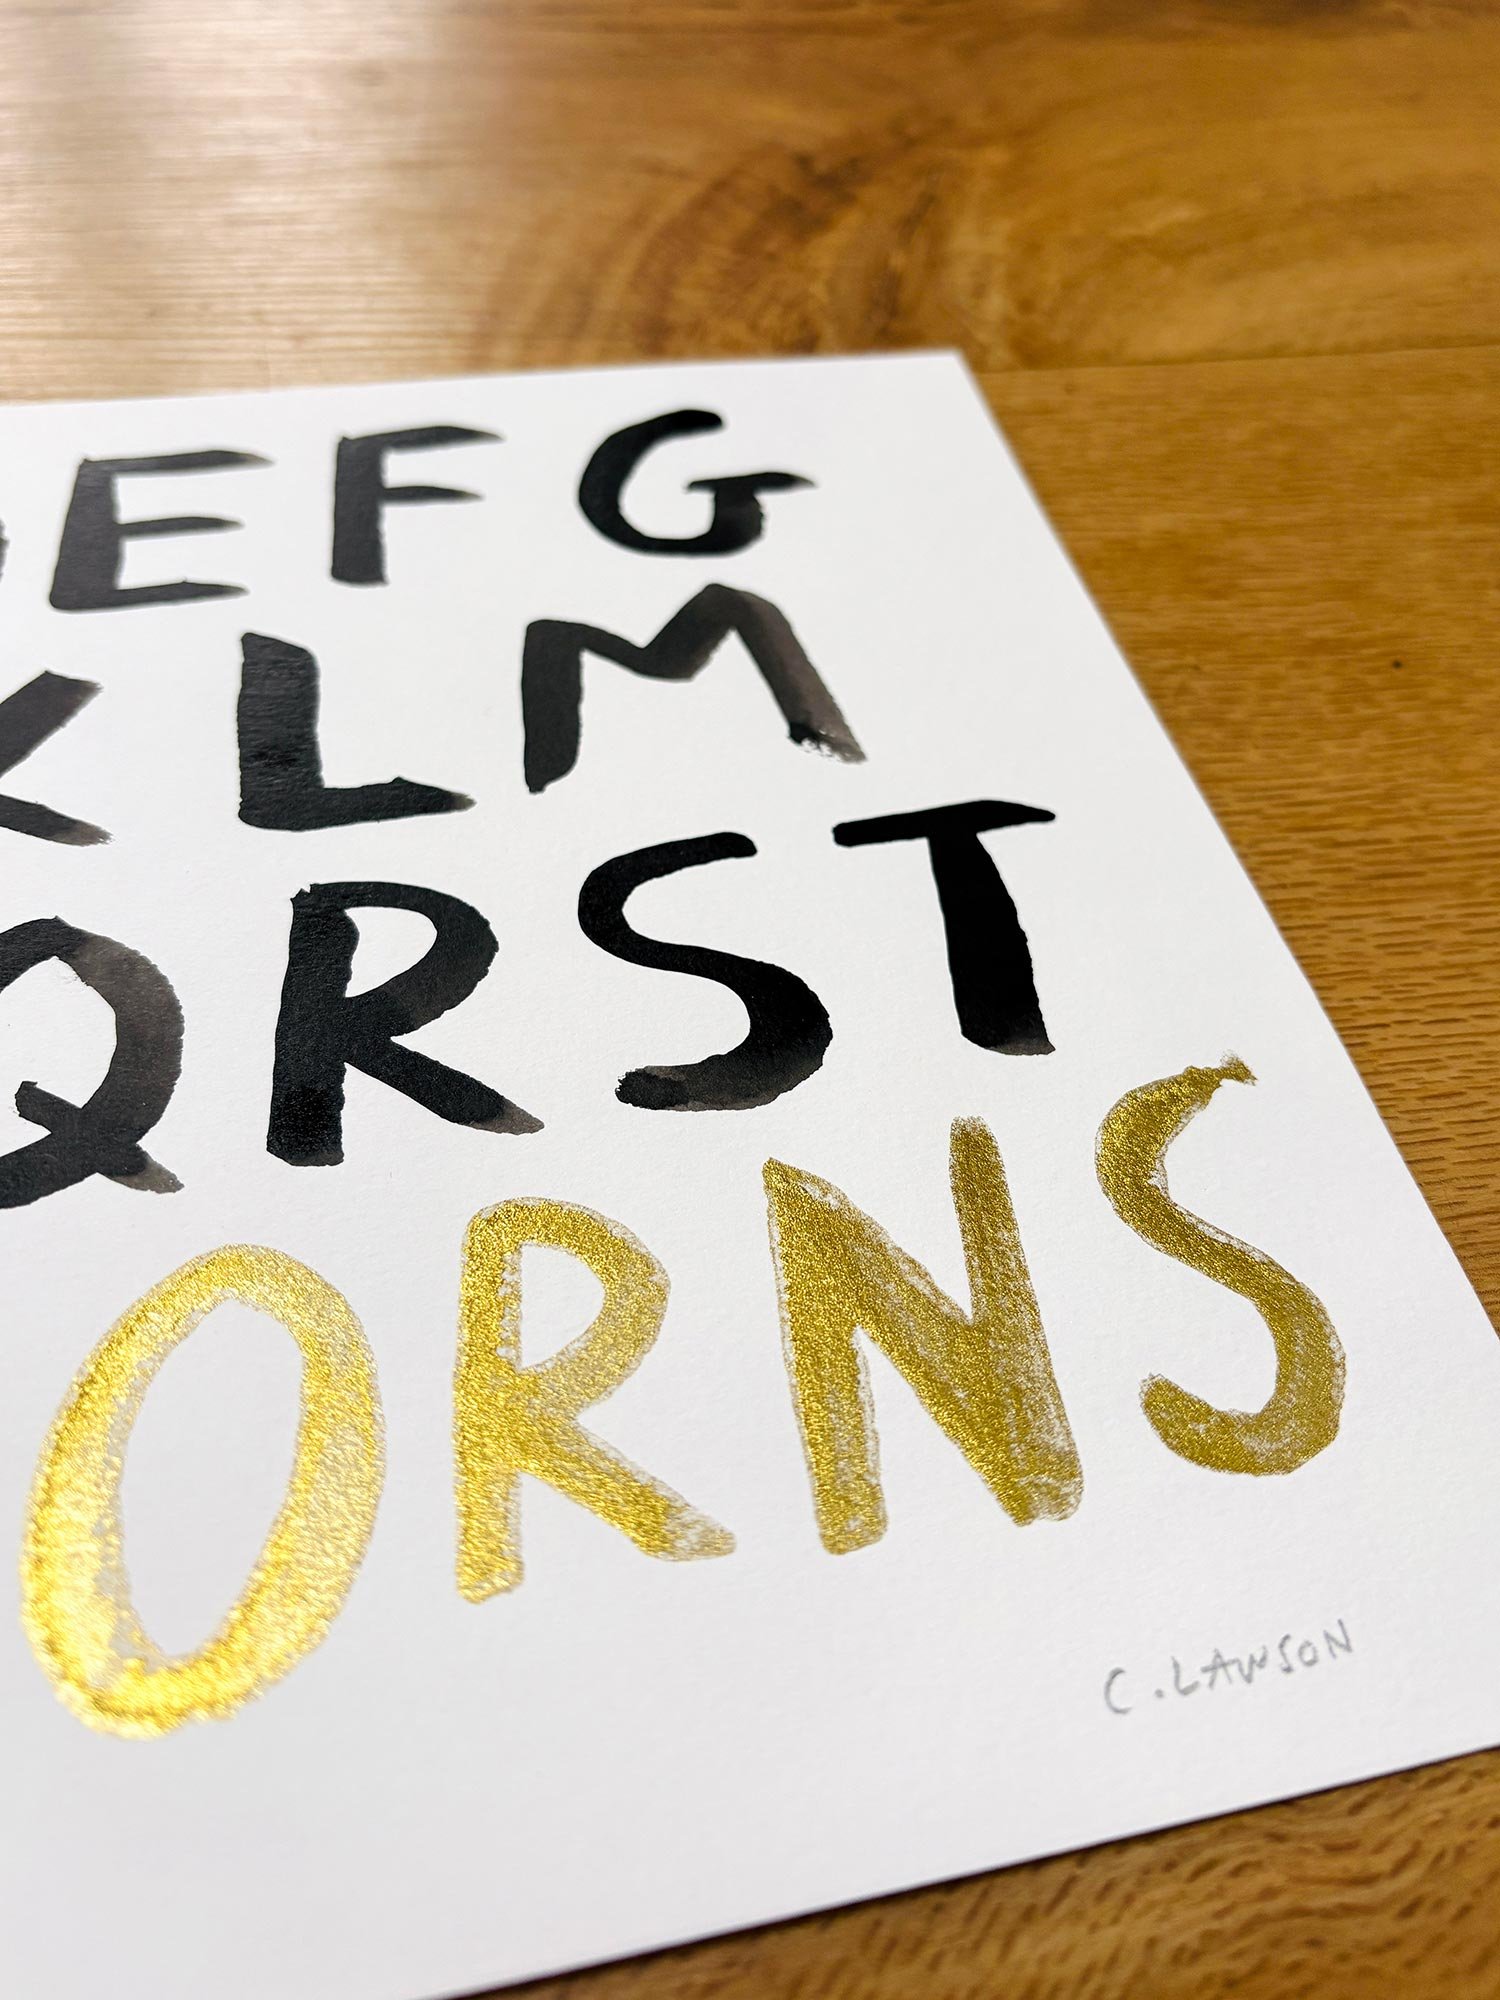 DEFG
KLM
QRST
ORNS
C. LAWSON